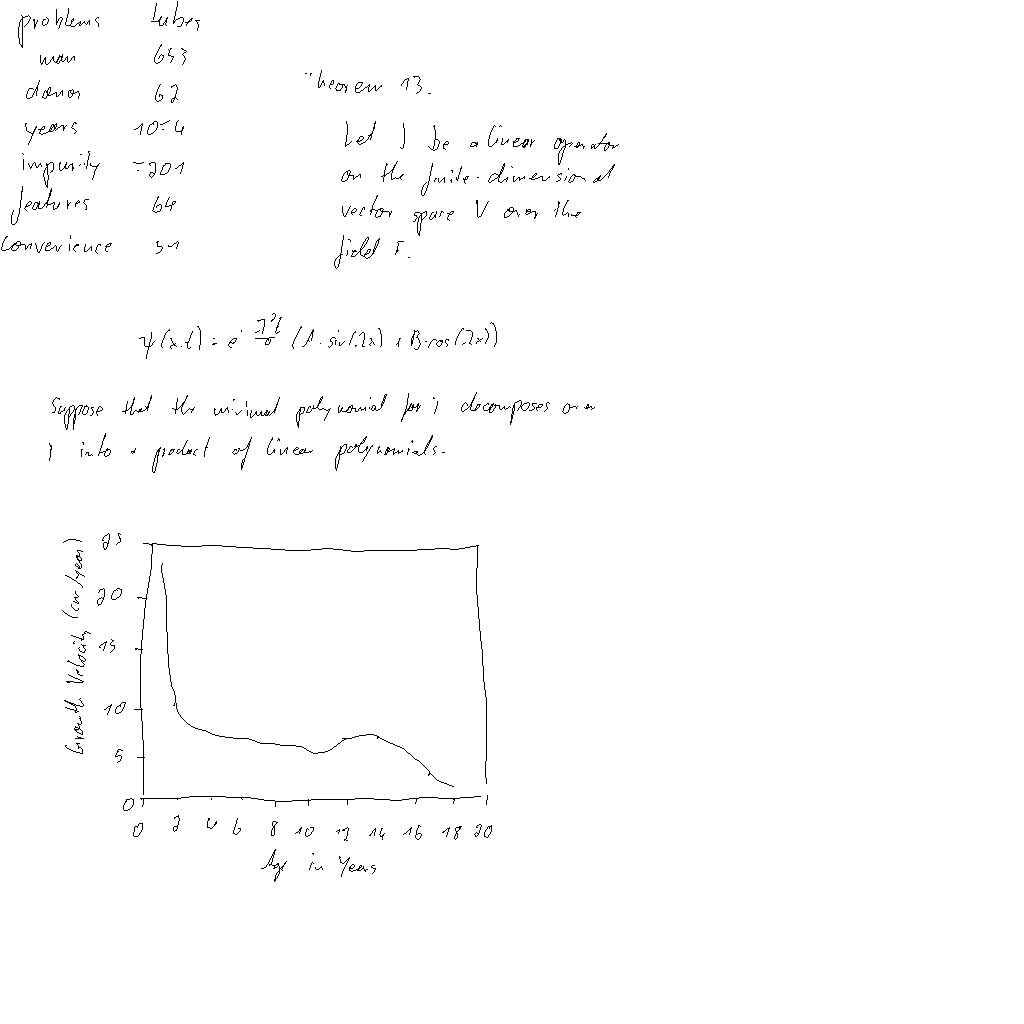 problems tubes
man 653
donor 62
years 10-4
impurity -201
features 64
convenience 51
Theorem 13.
Let T be a linear operator
on the finite-dimensional
vector space V over the
field F.
ψ(x,t) = e (A·sin(λx) + B·cos(λx))
Suppose that the minimal polynomial for T decomposes over
F into a product of linear polynomials.
Growth Velocity (cm/year)
25
20
15
10
5
0
0 2 4 6 8 10 12 14 16 18 20
Age in Years